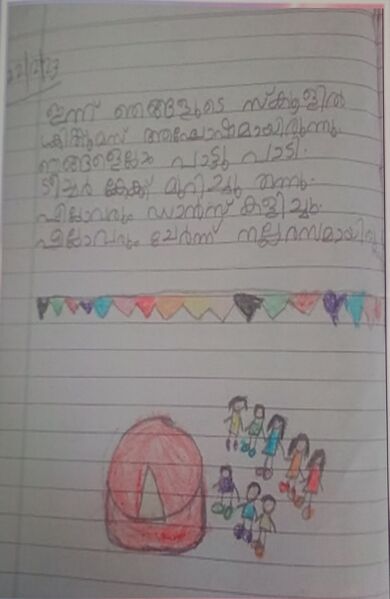 22/12/23
ഇന്ന് ഞങ്ങളുടെ സ്കൂളിൽ
ക്രിസ്തുമസ് ആഘോഷമായിരുന്നു.
ഞങ്ങളെല്ലാം പാട്ടു പാടി.
ടീച്ചർ കേക്ക് മുറിച്ചു തന്നു.
എല്ലാവരും ഡാൻസ് കളിച്ചു.
എല്ലാവരും ചേർന്ന് നല്ലരസമായിരു